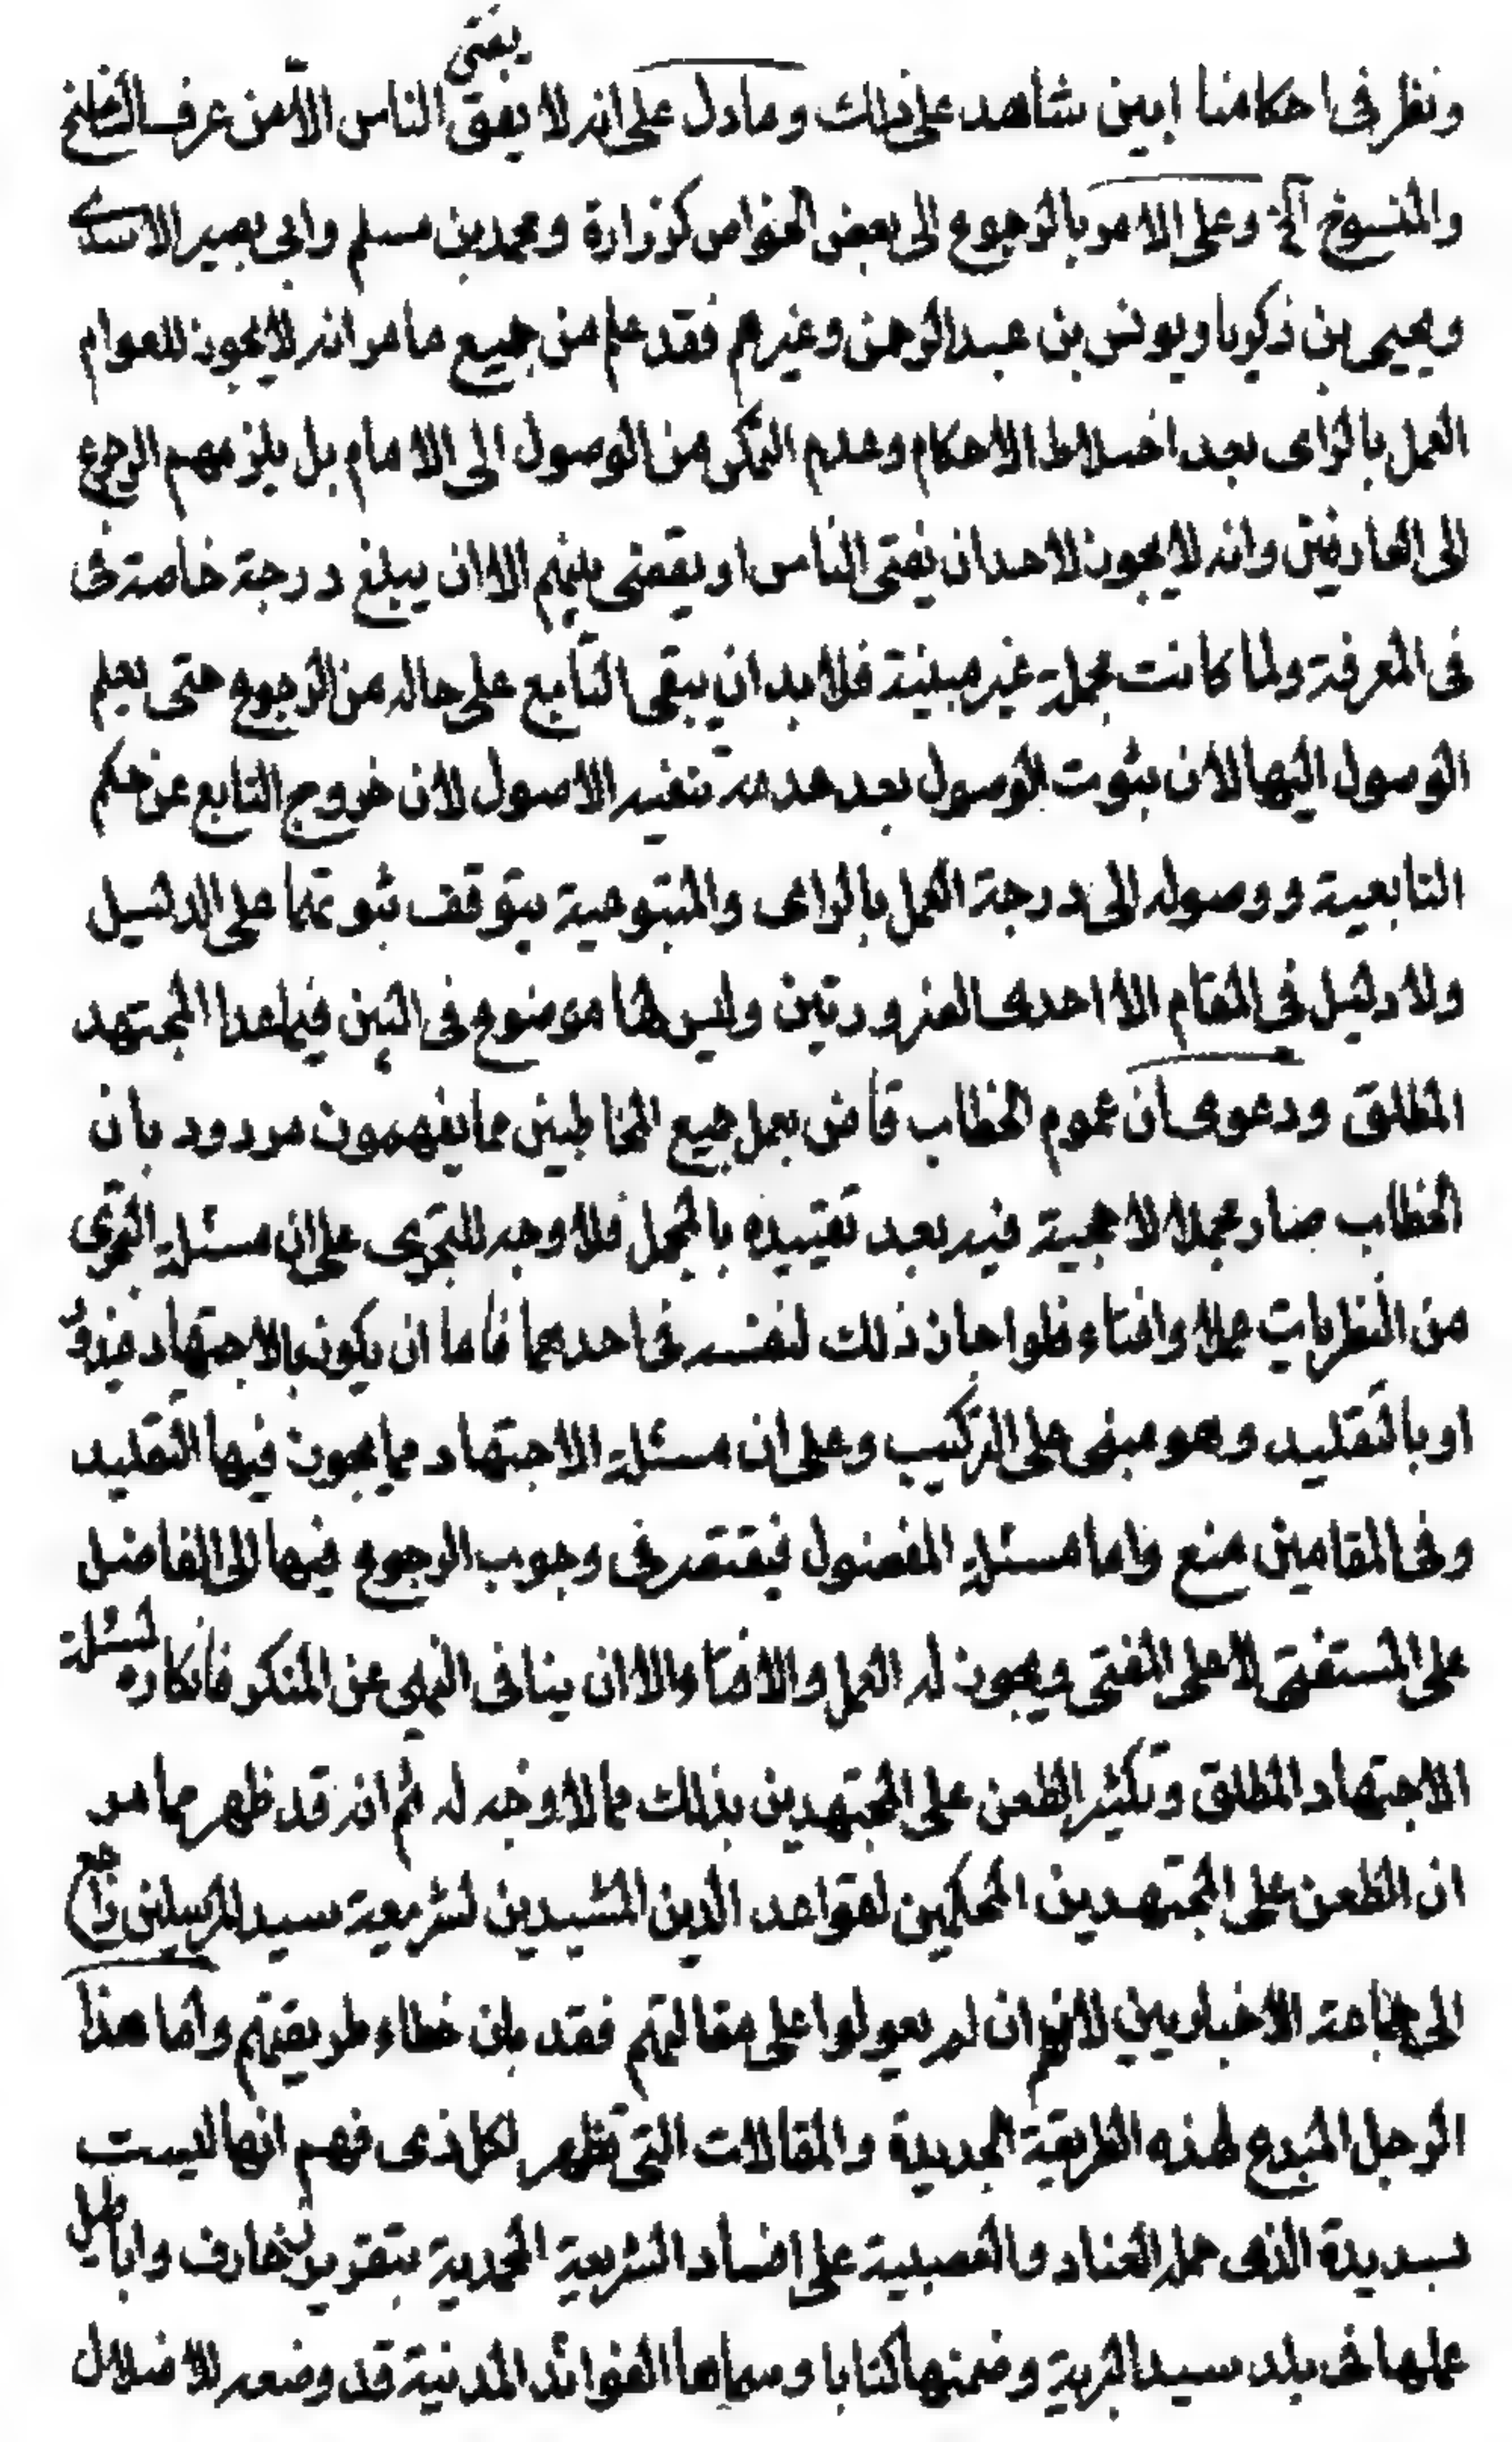 ونظر في احكامنا ابين شاهد على ذلك وما دل على انه لا يفتى الناس الا من عرف الناسخ
والمنسوخ الخ وعلى الامر بالرجوع الى بعض الخواص كزرارة ومحمد بن مسلم وابى بصير الاسدي
ويحيى بن زكريا ويونس بن عبد الرحمن وغيرهم فقد علم من جميع ما مر انه لا يجوز للعوام
العمل بالراى بعد اختلاط الاحكام وعدم التمكن من الوصول الى الامام بل يلزمهم الرجوع
الى العارفين وانه لا يجوز لاحد ان يفتى الناس او يقضى بينهم الا ان يبلغ درجة خاصة في
في المعرفة ولما كانت مجملة غير مبينة فلا بد ان يبقى التابع على حاله من الرجوع حتى يعلم
الوصول اليها لان بثوت الوصول بعد عدمه تنفيه الاصول لان خروج التابع عن حكم
التابعية ووصوله الى درجة العمل بالراى والمتبوعية يتوقف ثبوتهما على الدليل
ولا دليل في المقام الا احدى الضرورتين وليس لها موضوع في البين فيما عدا المجتهد
المطلق ودعوى ان عموم الخطاب قاض بعمل جميع المخاطبين مما يفهمون مردود بان
الخطاب صار مجملا لا حجية فيه بعد تقييده بالمجمل فلا وجه للتجزى على ان مسئلة التجزى
من النظريات عملا وافتاء فلو اجاز ذلك لنفسه في احدهما فاما ان يكون بالاجتهاد فيدور
او بالتقليد وهو مبنى على التركيب وعلى ان مسئلة الاجتهاد مما يجوز فيها التقليد
وفى المقامين منع واما مسئلة المفضول فيقتصر في وجوب الرجوع فيها الى الفاضل
على المستفتى لا على المفتى ويجوز له العمل والافتاء الا ان ينافى النهى عن المنكر فانكاره لمسئلة
الاجتهاد المطلق وتكثير الطعن على المجتهدين بذلك مما لا وجه له ثم انه قد ظهر مما مر
ان الطعن على المجتهدين المحكمين لقواعد الدين المشيدين لشريعة سيد المرسلين راجع
الى جماعة الاخباريين لانهم ان لم يعولوا على مقالتهم فقد بان خطاء طريقتهم واما هذا
الرجل المبدع لهذه الطريقة الجديدة والمقالات التى تظهر لكل ذى فهم انها ليست
بسديدة الذى حمله العناد والعصبية على افساد الشريعة المحمدية بتقرير زخارف واباطيل
عملها في بلد سيد البرية وضمنها كتابا وسماها الفوائد المدنية قد وضعه للاضلال